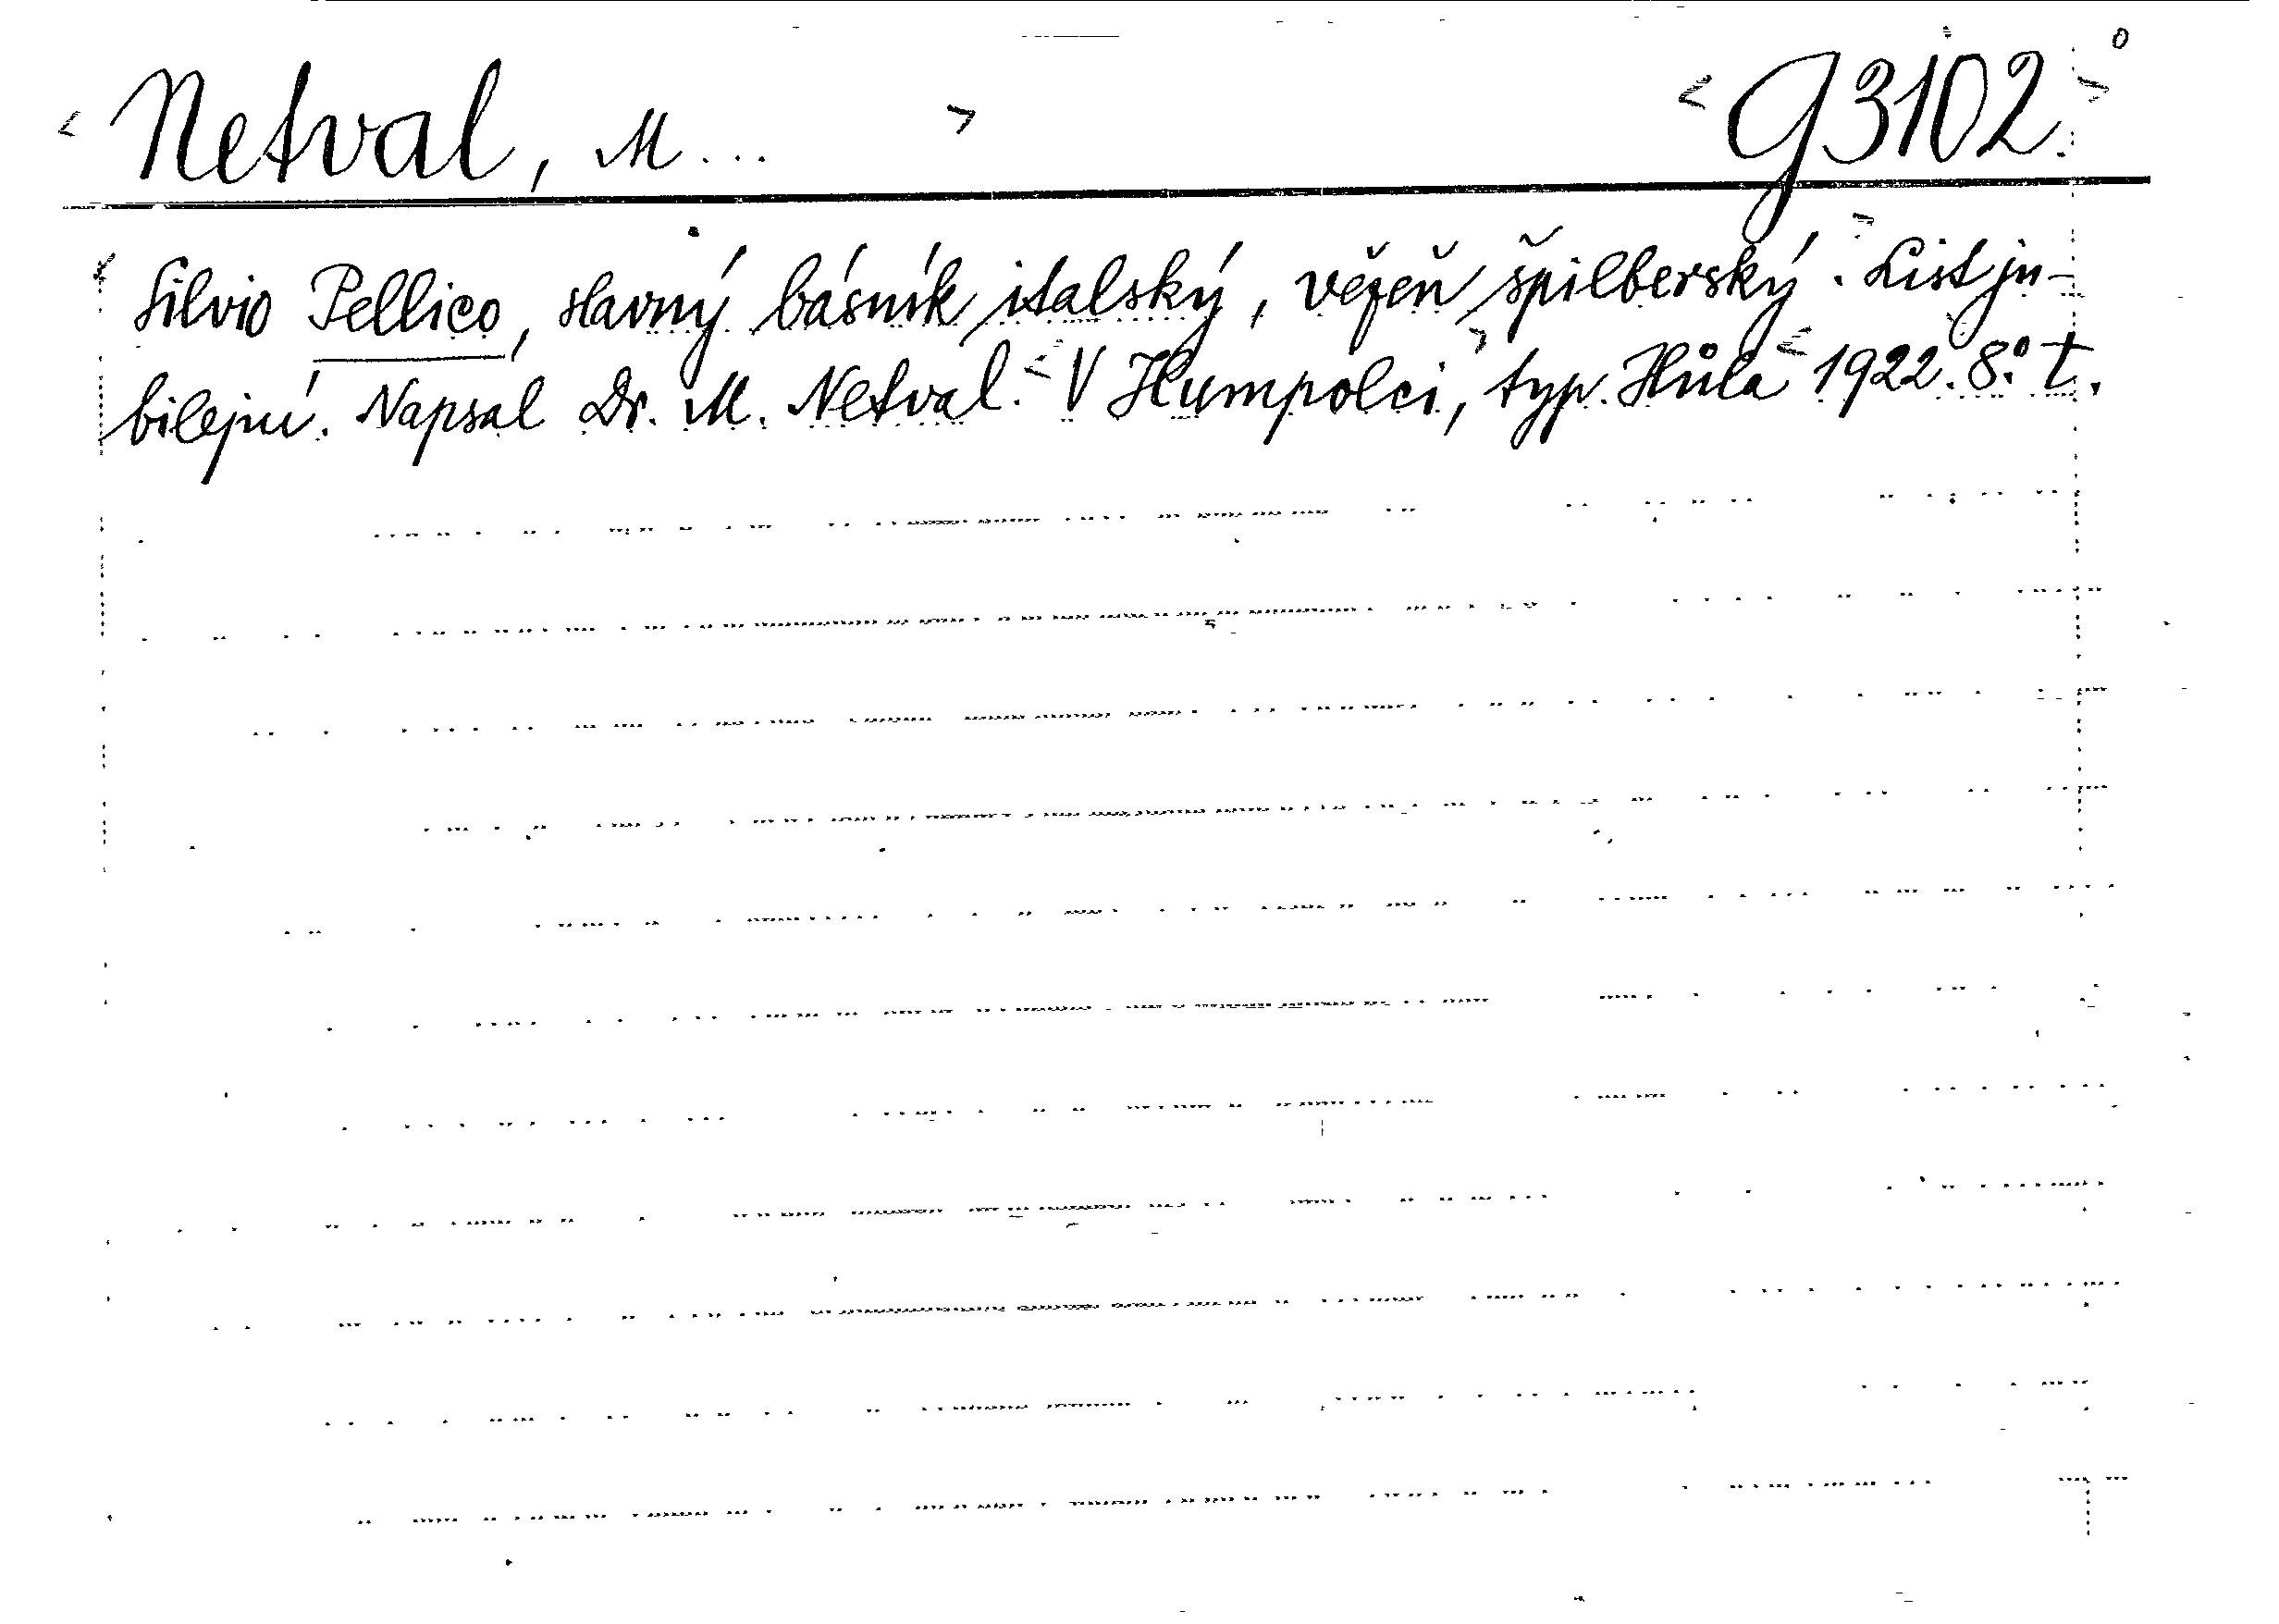 < Netval, M... > < G3102. >
Silvio Pellico, slavný básník italský, vězeň špilberský. List ju-
bilejní. Napsal Dr. M. Netval. V Humpolci, typ. Hůla 1922. 8.° t.